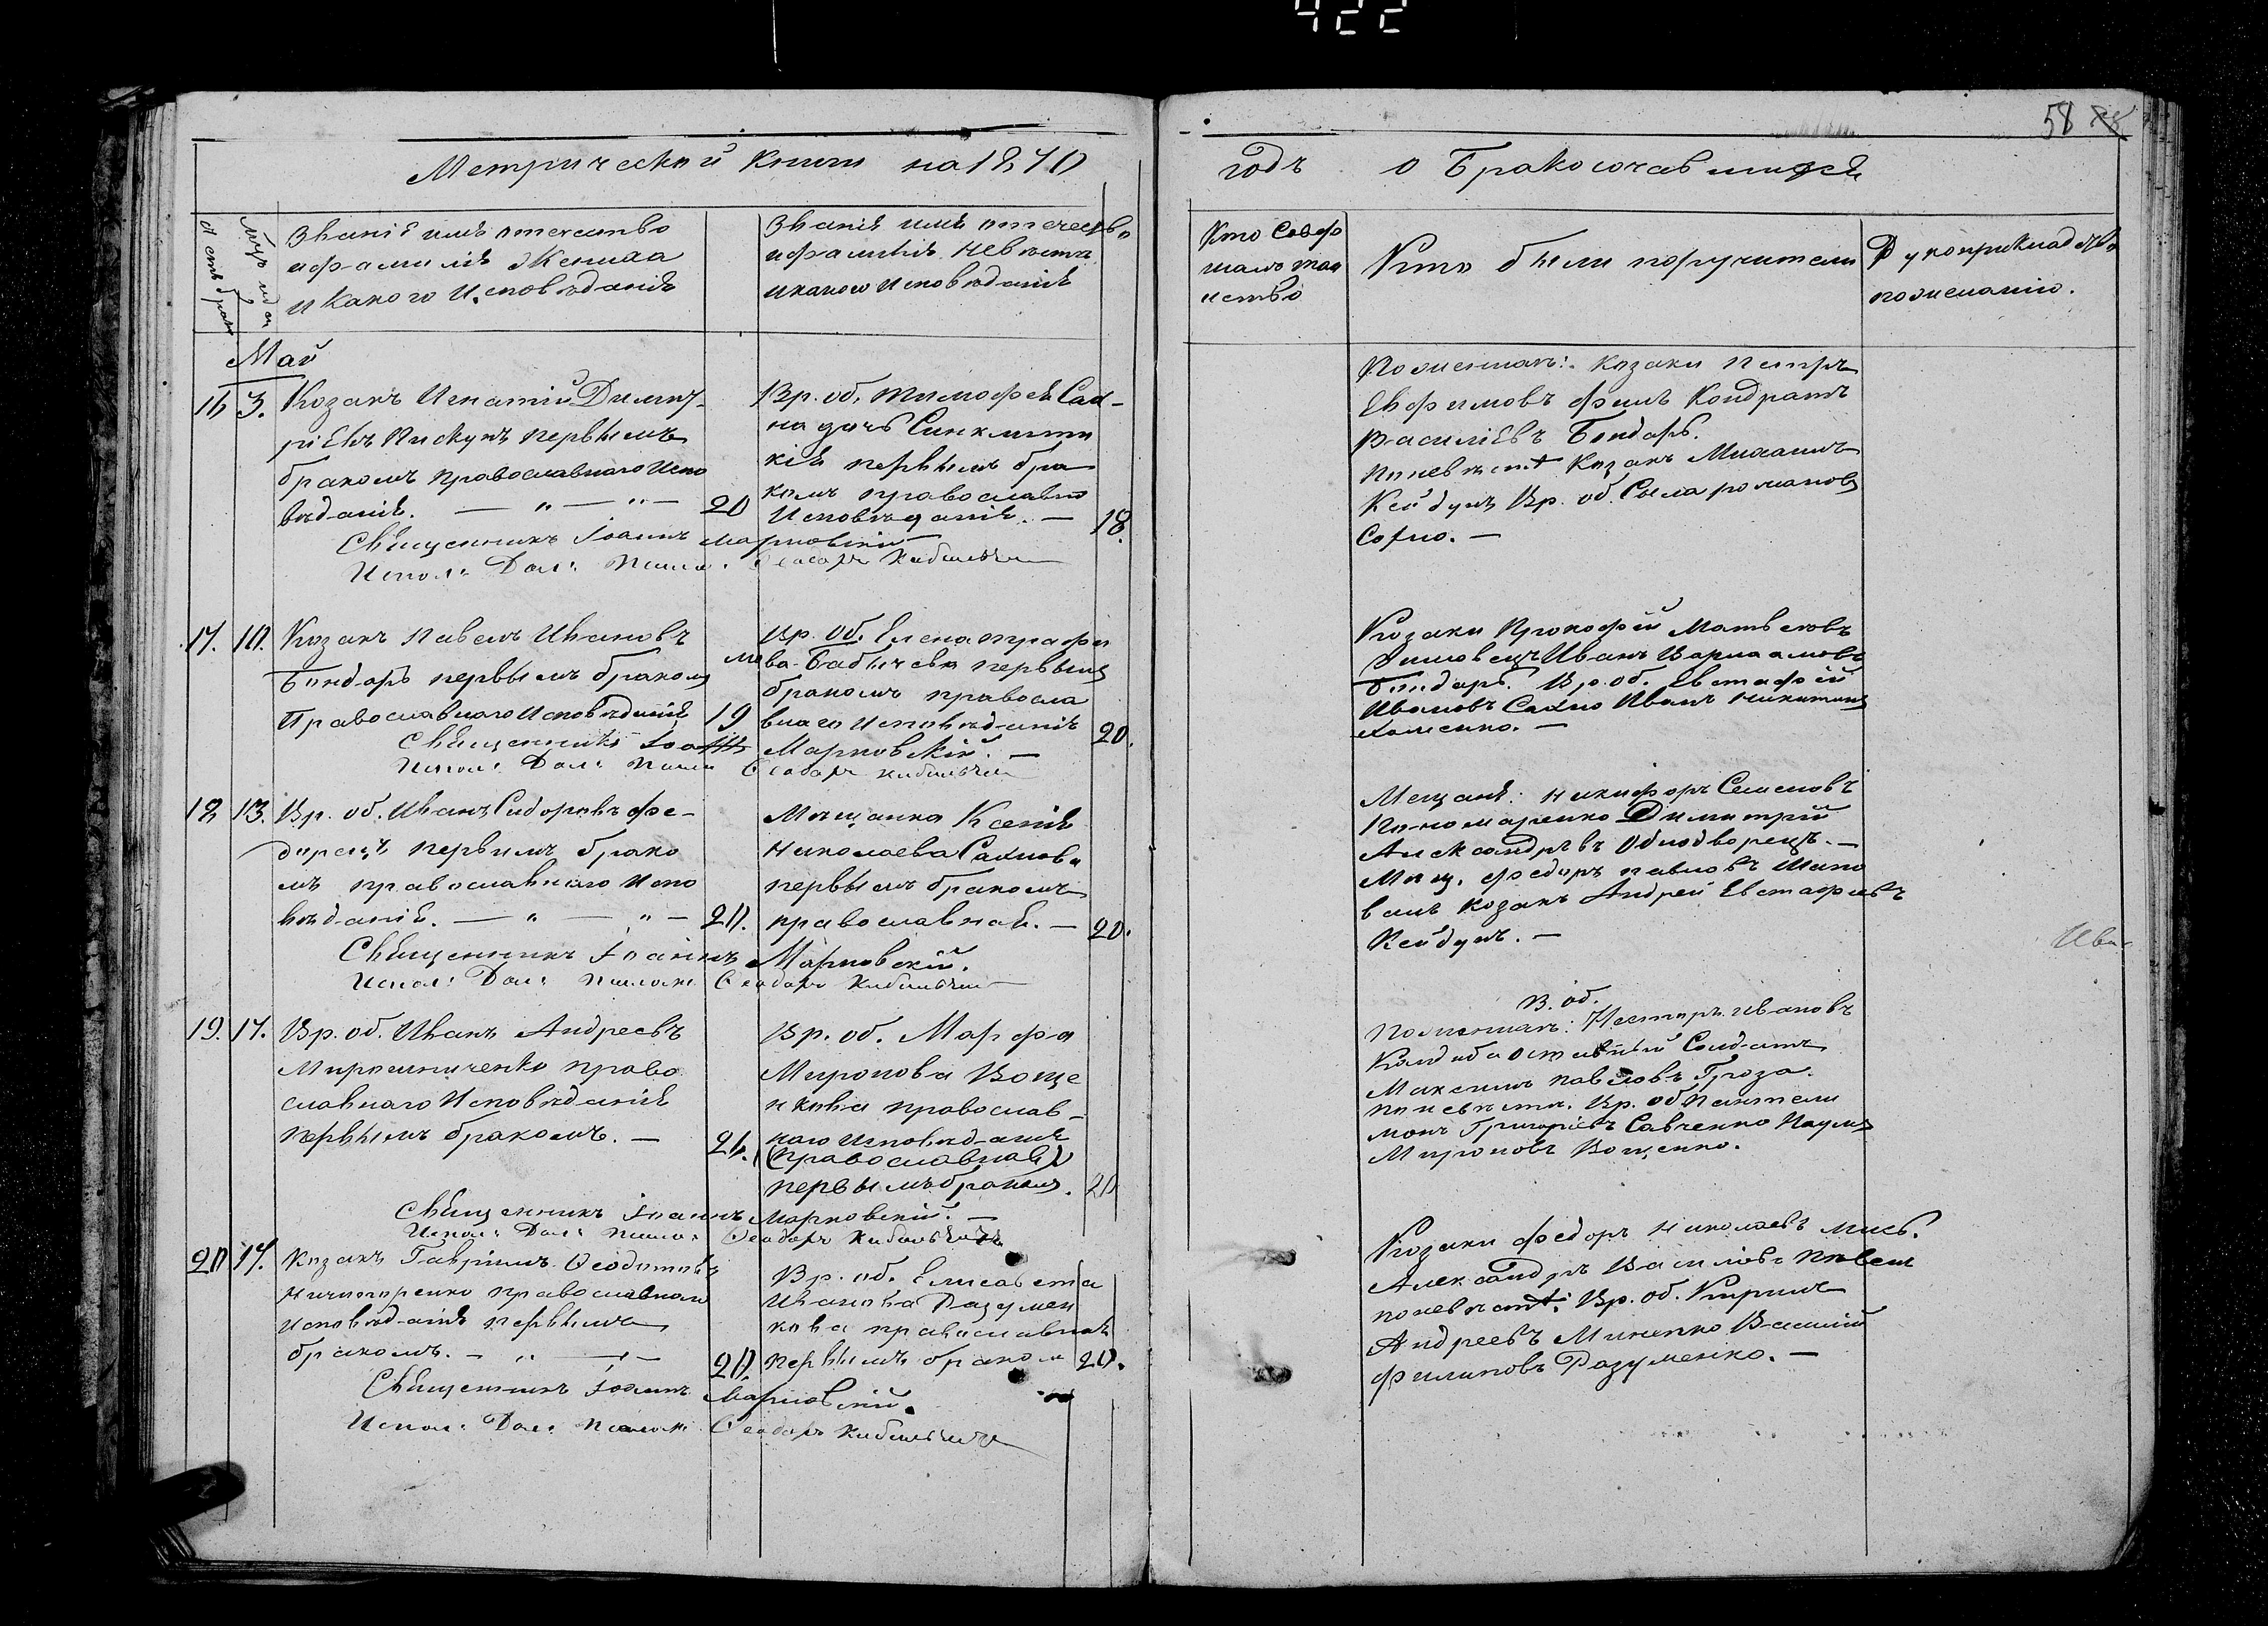 422
58
Метрической книги на 1870
годъ о Бракосочавшихся
Счетъ брак
Мѣц и д
Званіе имя отечество
и фамилія Жениха
и какого Исповѣданія
Званіе имя отечество
и фамилія Невѣсты
и какого Исповѣданія
Кто Совер
шалъ таи
нство
Кто были поручители
Рукоприкладство
по желанію.
Май
16 3. Козакъ Игнатій Димит-
ріевъ Пискунъ первымъ
бракомъ православнаго Испо
вѣданія. — „ — „ — 20
Вр. об. Тимофея Сах-
на дочь Синклити
кія первымъ бра
комъ православно
Исповѣданія. — 18.
Священникъ Іоаннъ Марковскій
Испол: Дол: Псалом. Ѳеодоръ Кибальчичъ
Поженихъ: Козаки Петръ
Евфимовъ Кондратъ
Василіевъ Бондарь.
По невѣстѣ Козакъ Михаилъ
Кейдунъ Вр. об. Сыла романовъ
Сахно. —
17. 10. Козакъ Павелъ Ивановъ
Бондарь первымъ бракомъ
Православнаго Исповѣданія 19
Вр. Об. Елена трофи
мова Бабичева первымъ
бракомъ правосла
внаго Исповѣданія 20.
Священникъ Іоаннъ Марковскій. —
Испол: Дол: Псалом Ѳеодоръ Кибальчичъ
Козаки Прокофій Матвѣевъ
Иванъ Варлаамовъ
Бондарь. Вр. об. Евстафій
Ивановъ Сахно Иванъ Никитинъ
Хоменко. —
18 13. Вр. об. Иванъ Сидоровъ Фе-
дорецъ первымъ брако
мъ православнаго Испо
вѣданія. — „ — „ — 20.
Мѣщанка Ксенія
Николаева Сахнова
первымъ бракомъ
православная. — 20.
Священникъ Іоаннъ Марковскій.
Испол: Дол: Псалом: Ѳеодоръ Кибальчичъ
Мещане: Никифоръ Семеновъ
Пономаренко Димитрій
Александровъ Однодворецъ. —
Мѣщ. Федоръ павловъ Шапо
валъ Козакъ Андрей Евстафіевъ
Кейдунъ. —
19. 17. Вр. об. Иванъ Андреевъ
Мирошниченко право
славнаго Исповѣданія
первымъ бракомъ. — 21.
Вр. об. Марфа
Миронова Воще
нкова православ-
наго Исповѣданія
(православная)
первымъ бракомъ. 20
Священникъ Іоаннъ Марковскій. —
Испол: Дол: Псалом: Ѳеодоръ Кибальчичъ
В. об.
Поженихъ: Несторъ Ивановъ
Колдиба отставный Солдатъ
Максимъ Павловъ Гроза.
По невѣстѣ. Вр. об Пантели
монъ Григоріевъ Савченко Наумъ
Мироновъ Вощенко.
20 17. Козакъ Гавріилъ Ѳеодотовъ
Ничипоренко православнаго
исповѣданія первымъ
бракомъ. — „ — 20.
Вр. об. Елисавета
Иванова Разумен
кова православная
первымъ бракомъ 20.
Священникъ Іоаннъ Марковскій.
Испол: Дол: Псалом: Ѳеодоръ Кибальчичъ
Козаки Федоръ Николаевъ
Александръ Василіевъ
по невѣстѣ: Вр. об. Кирилъ
Андреевъ Миненко Василій
Филиповъ Разуменко. —